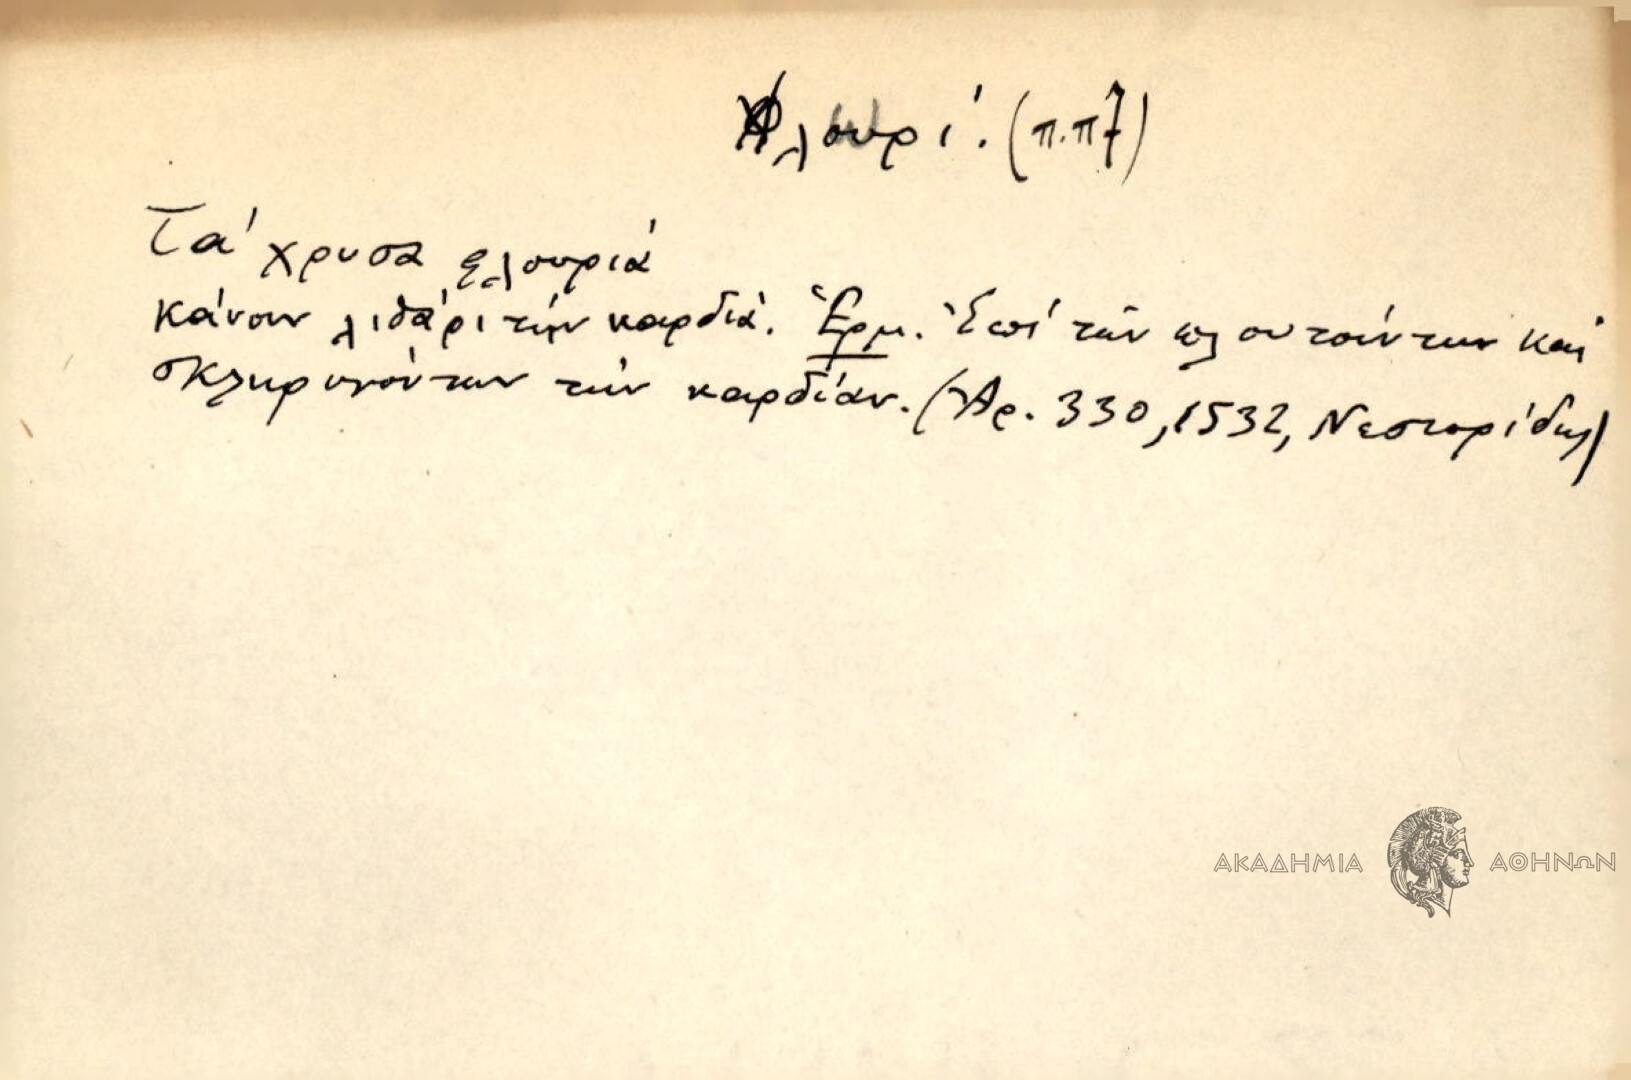 Φλουρί. (π.π7)
Τά χρυσα φλουριά
κάνουν λιθάρι τήν καρδιά. Ἑρμ. Ἐπί τῶν πλουτούντων καί
σκληρυνόντων τήν καρδίαν. (Ἀρ. 330, 1532, Νεστορίδης)
ΑΚΑΔΗΜΙΑ ΑΘΗΝΩΝ